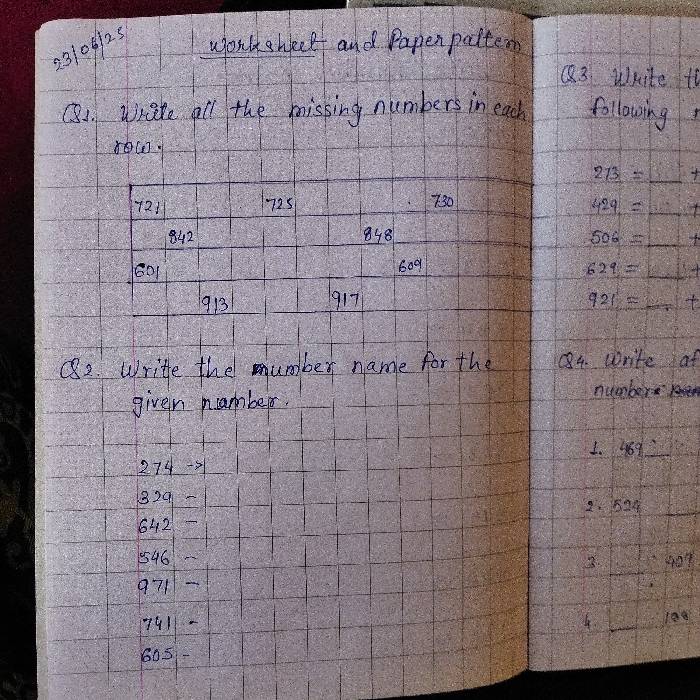 23/06/25
Worksheet and Paper pattern
Q1. Write all the missing numbers in each
row.
721 725 730
842 848
601 609
913 917
Q2. Write the number name for the
given number.
274 →
329 -
642 -
546 -
971 -
741 -
605 -
Q3 Write
following
273 = +
429 = +
506 = +
629 = +
921 = +
Q4. Write
number
1. 469
2. 524
3. 407
4.